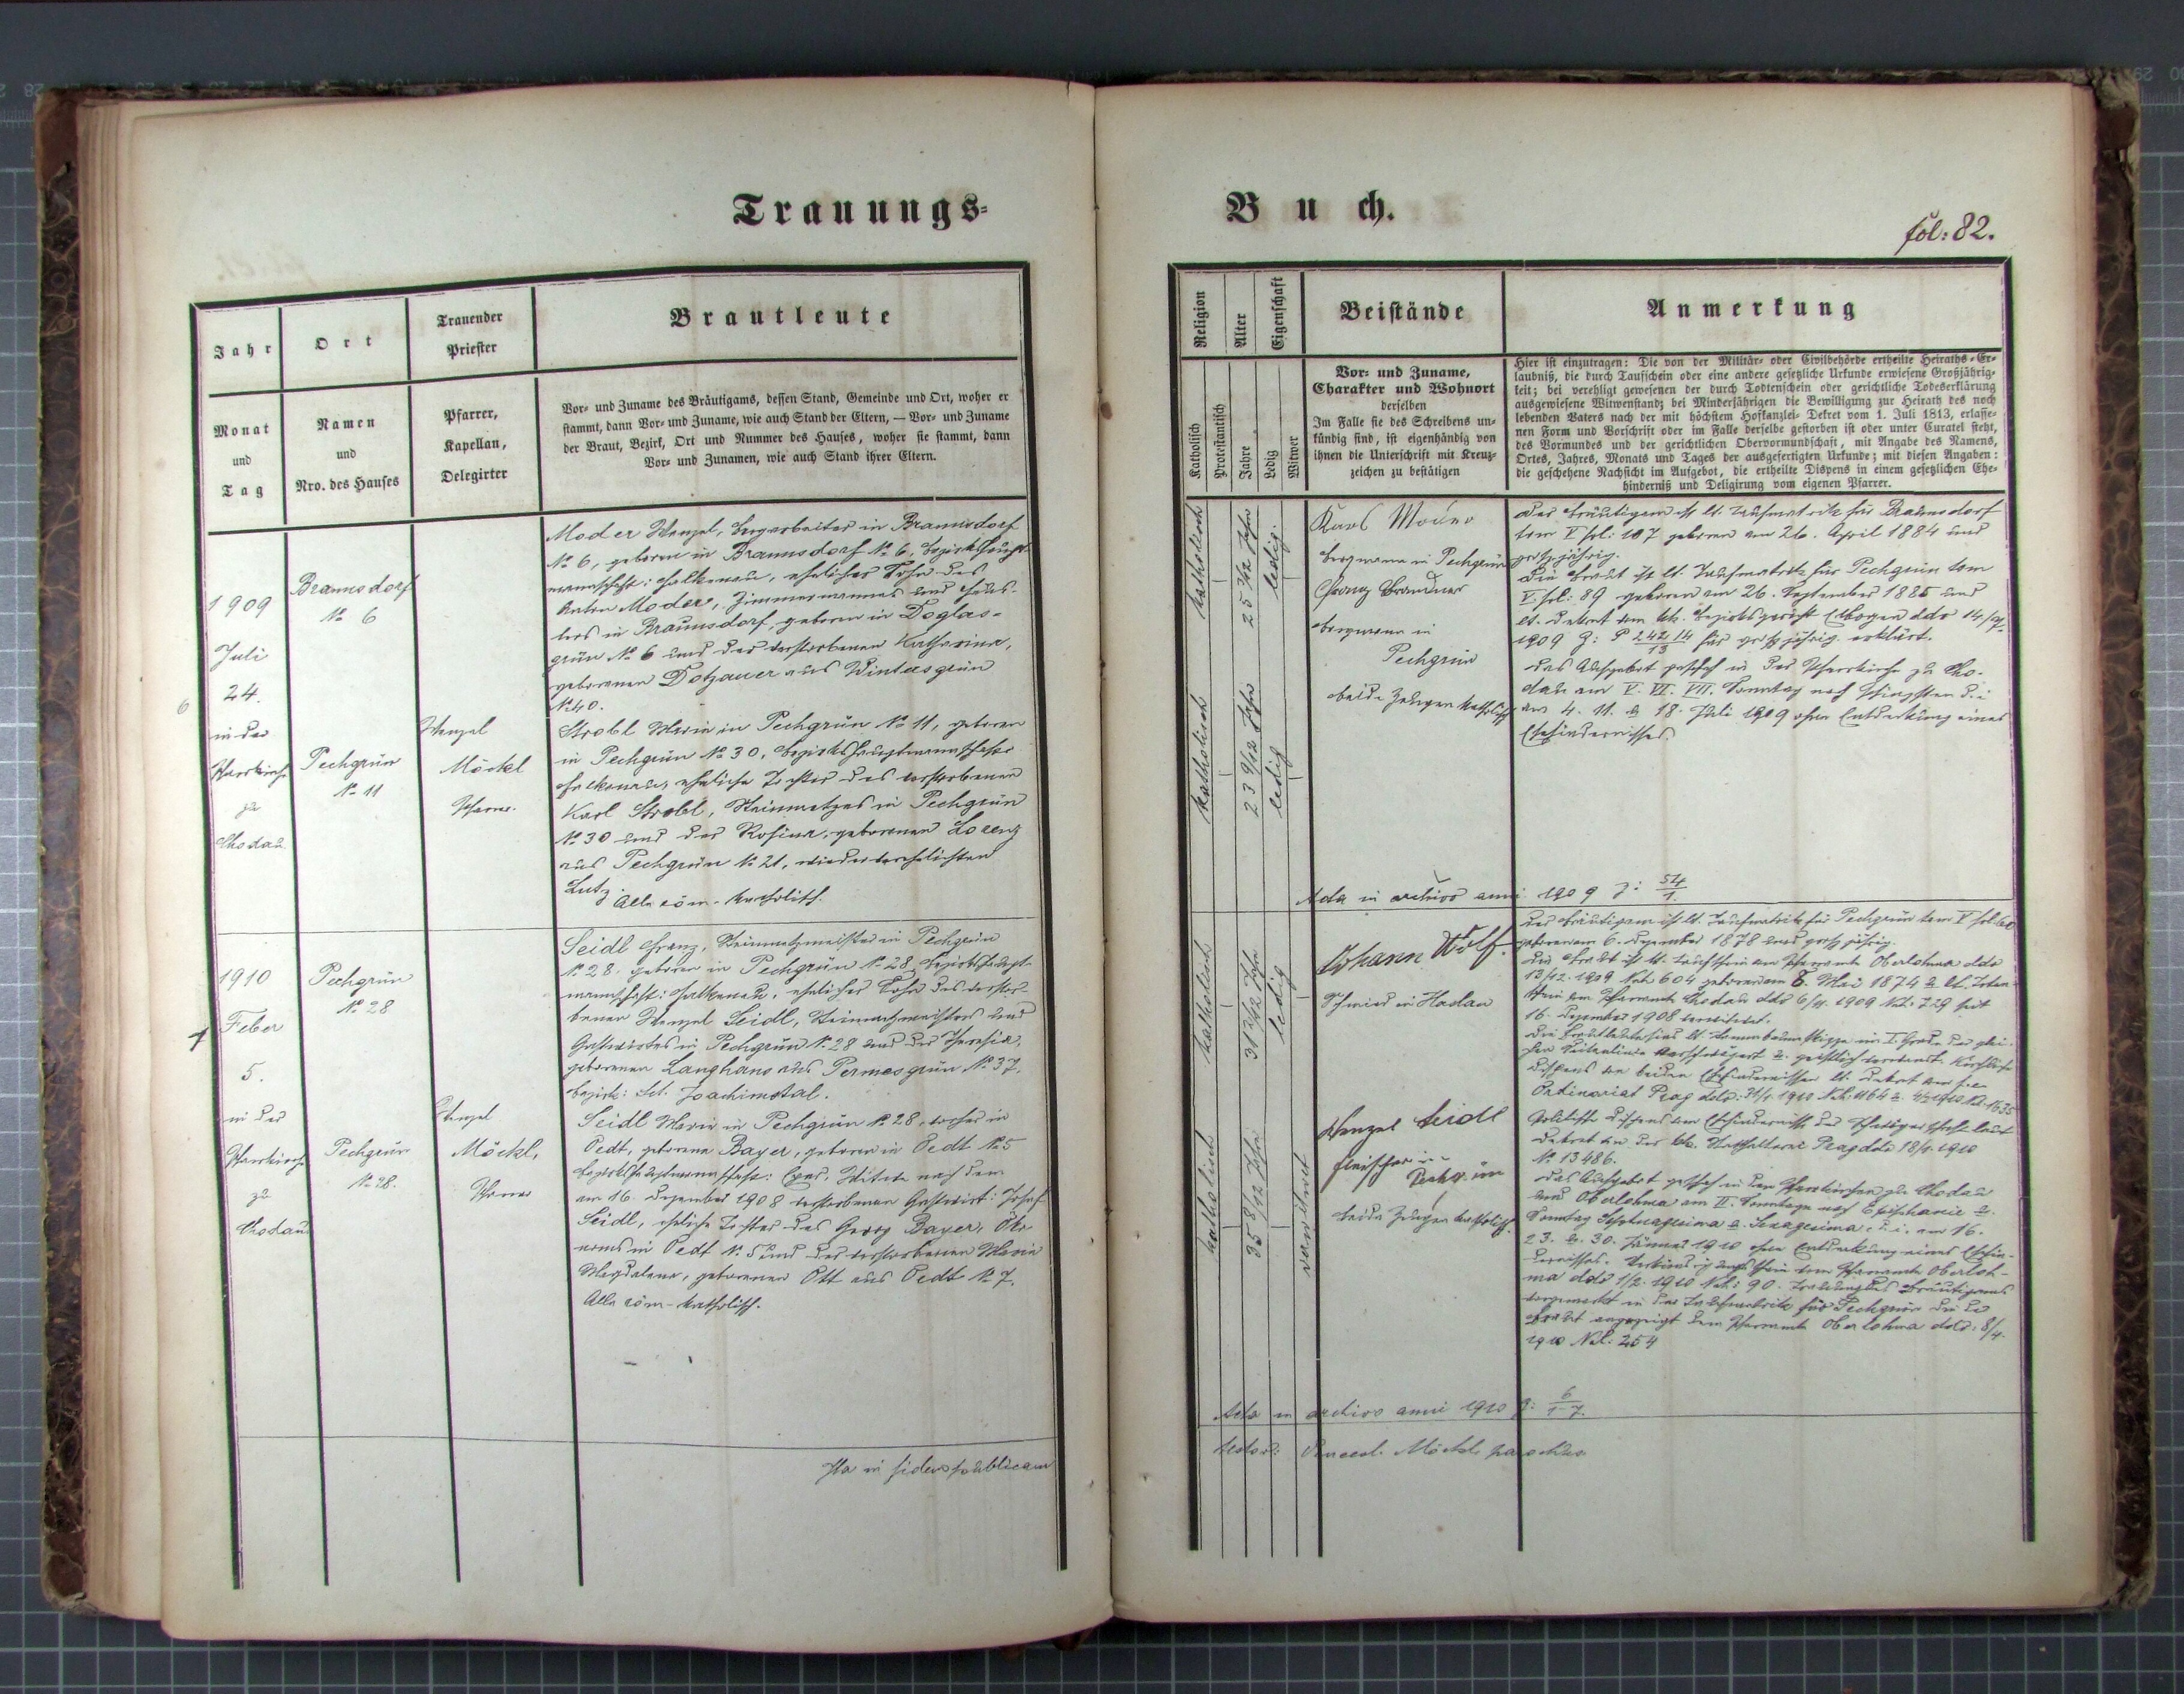 Trauungs-
Jahr
Monat
und
Tag
Ort
Namen
und
Nro. des Hauses
Trauender
Priester
Pfarrer,
Kapellan,
Delegirter
Brautleute
Vor- und Zuname des Bräutigams, dessen Stand, Gemeinde und Ort, woher er
stammt, dann Vor- und Zuname, wie auch Stand der Eltern, — Vor- und Zuname
der Braut, Bezirk, Ort und Nummer des Hauses, woher sie stammt, dann
Vor- und Zunamen, wie auch Stand ihrer Eltern.
6
1909
Juli
24.
in der
Pfarrkirche
zu
Chodau
Braunsdorf
№ 6
Pechgrün
№ 11
Wenzel
Möckl
Pfarrer.
Moder Wenzel, Bergarbeiter in Braunsdorf
№ 6, geboren in Braunsdorf № 6, Bezirkshaupt-
mannschaft: Falkenau, ehelicher Sohn des
Anton Moder, Zimmermannes und Häus-
lers in Braunsdorf, geboren in Doglas-
grün № 6 und der verstorbenen Katharina,
geborenen Dotzauer aus Wintersgrün
№ 40.
Strobl Maria in Pechgrün № 11, geboren
in Pechgrün № 30, Bezirkshauptmannschaft
Falkenau, eheliche Tochter des verstorbenen
Karl Strobl, Steinmetzes in Pechgrün
№ 30 und der Rosina, geborenen Lorenz
aus Pechgrün № 21, wiederverehelichten
Lutz. Alle röm.-katholisch.
7
1910
Feber
5.
in der
Pfarrkirche
zu
Chodau
Pechgrün
№ 28
Pechgrün
№ 28.
Wenzel
Möckl,
Pfarrer
Seidl Franz, Steinmetzmeister in Pechgrün
№ 28, geboren in Pechgrün № 28, Bezirkshaupt-
mannschaft: Falkenau, ehelicher Sohn des verstor-
benen Wenzel Seidl, Steinmetzmeisters und
Gastwirtes in Pechgrün № 28 und der Theresia,
geborenen Langhans aus Permesgrün № 37,
Bezirk: Sct. Joachimstal.
Seidl Maria in Pechgrün № 28, vorher in
Oedt, geborene Bayer, geboren in Oedt № 5
Bezirkshauptmannschaft: Eger, Witwe nach dem
am 16. Dezember 1908 verstorbenen Gastwirt: Josef
Seidl, eheliche Tochter des Georg Bayer, Öko-
noms in Oedt № 5 und der verstorbenen Maria
Magdalena, geborenen Ott aus Oedt № 7.
Alle röm.-katholisch.
Ita in fidem publicam
Buch.
fol: 82.
Religion
Alter
Eigenschaft
Katholisch
Protestantisch
Jahre
Ledig
Witwer
Beistände
Vor- und Zuname,
Charakter und Wohnort
derselben
Im Falle sie des Schreibens un-
kündig sind, ist eigenhändig von
ihnen die Unterschrift mit Kreuz-
zeichen zu bestätigen
Anmerkung
Hier ist einzutragen: Die von der Militär- oder Civilbehörde ertheilte Heiraths-Er-
laubniß, die durch Taufschein oder eine andere gesetzliche Urkunde erwiesene Großjährig-
keit; bei verehligt gewesenen der durch Todtenschein oder gerichtliche Todeserklärung
ausgewiesene Witwenstand; bei Minderjährigen die Bewilligung zur Heirath des noch
lebenden Vaters nach der mit höchstem Hofkanzlei-Dekret vom 1. Juli 1813, erlasse-
nen Form und Vorschrift oder im Falle derselbe gestorben ist oder unter Curatel steht,
des Vormundes und der gerichtlichen Obervormundschaft, mit Angabe des Namens,
Ortes, Jahres, Monats und Tages der ausgefertigten Urkunde; mit diesen Angaben:
die geschehene Nachsicht im Aufgebot, die ertheilte Dispens in einem gesetzlichen Ehe-
hinderniß und Deligirung vom eigenen Pfarrer.
katholisch
25 3/12 Jahre
ledig.
katholisch
23 9/12 Jahre
ledig
Karl Moder
Bergmann in Pechgrün
Franz Brandner
Bergmann in
Pechgrün
beide Zeugen katholisch
Der Bräutigam ist lt. Taufmatrik für Braunsdorf
tom V fol: 107 geboren am 26. April 1884 und
großjährig.
Die Braut ist lt. Taufmatrik für Pechgrün tom
V. fol: 89 geboren am 26. September 1885 und
lt. Dekret vom kk. Bezirksgericht Elbogen ddo 14/
1909 Z: P 242/13 14 für großjährig erklärt.
Das Aufgebot geschah in der Pfarrkirche zu Cho-
dau am V. VI. VII. Sonntag nach Pfingsten d. i.
am 4. 11. & 18. Juli 1909 ohne Entdeckung eines
Ehehindernisses.
Acta in archivo anni 1909 Z: 54/1.
katholisch
31 2/12 Jahre
ledig
katholisch
35 8/12 Jahre
verwitwet
Johann Wolf.
Schmied in Haslau
Wenzel Seidl
Fleischer in
Pechgrün
beide Zeugen katholisch.
Der Bräutigam ist lt. Taufmatrik für Pechgrün tom V fol
geboren am 6. Dezember 1878 und großjährig.
Die Braut ist lt. Taufschein vom Pfarramte Oberlohma ddo
13/12. 1909 NE: 604 geboren am 8. Mai 1874 & lt. Toten-
schein vom Pfarramte Chodau ddo 6/ 1909 NE: 729 seit
16. Dezember 1908 verwitwet.
Die Brautleute sind lt. Stammbaumskizze im I. Grade der glei-
chen Seitenlinie verschwägert & geistlich verwandt. Kirchliche
Dispens von beiden Ehehindernissen lt. Dekret vom f. e.
Ordinariat Prag ddo: 1910
Politische Dispens vom Ehehindernisse der Schwägerschaft laut
Dekret von der kk. Statthalterei Prag ddo 18/1. 1910
№ 13486.
Das Aufgebot geschah in den Pfarrkirchen zu Chodau
und Oberlohma am II. Sonntage nach Epiphanie &
Sonntag Septuagesima & Sexagesima, d. i. am 16.
23. & 30. Jänner 1910 ohne Entdeckung eines Ehehin-
dernisses. Verkündigungsschein vom Pfarramte Oberloh-
ma ddo 1/2. 1910 NE: 90. Trauung des Bräutigams
vorgemerkt in der Taufmatrik für Pechgrün die der
Braut angezeigt dem Pfarramte Oberlohma ddo: 8/4.
1910 NE: 254
Acta in archivo anni 1910 Z: 6/1-7.
Venceal. Möckl parochus